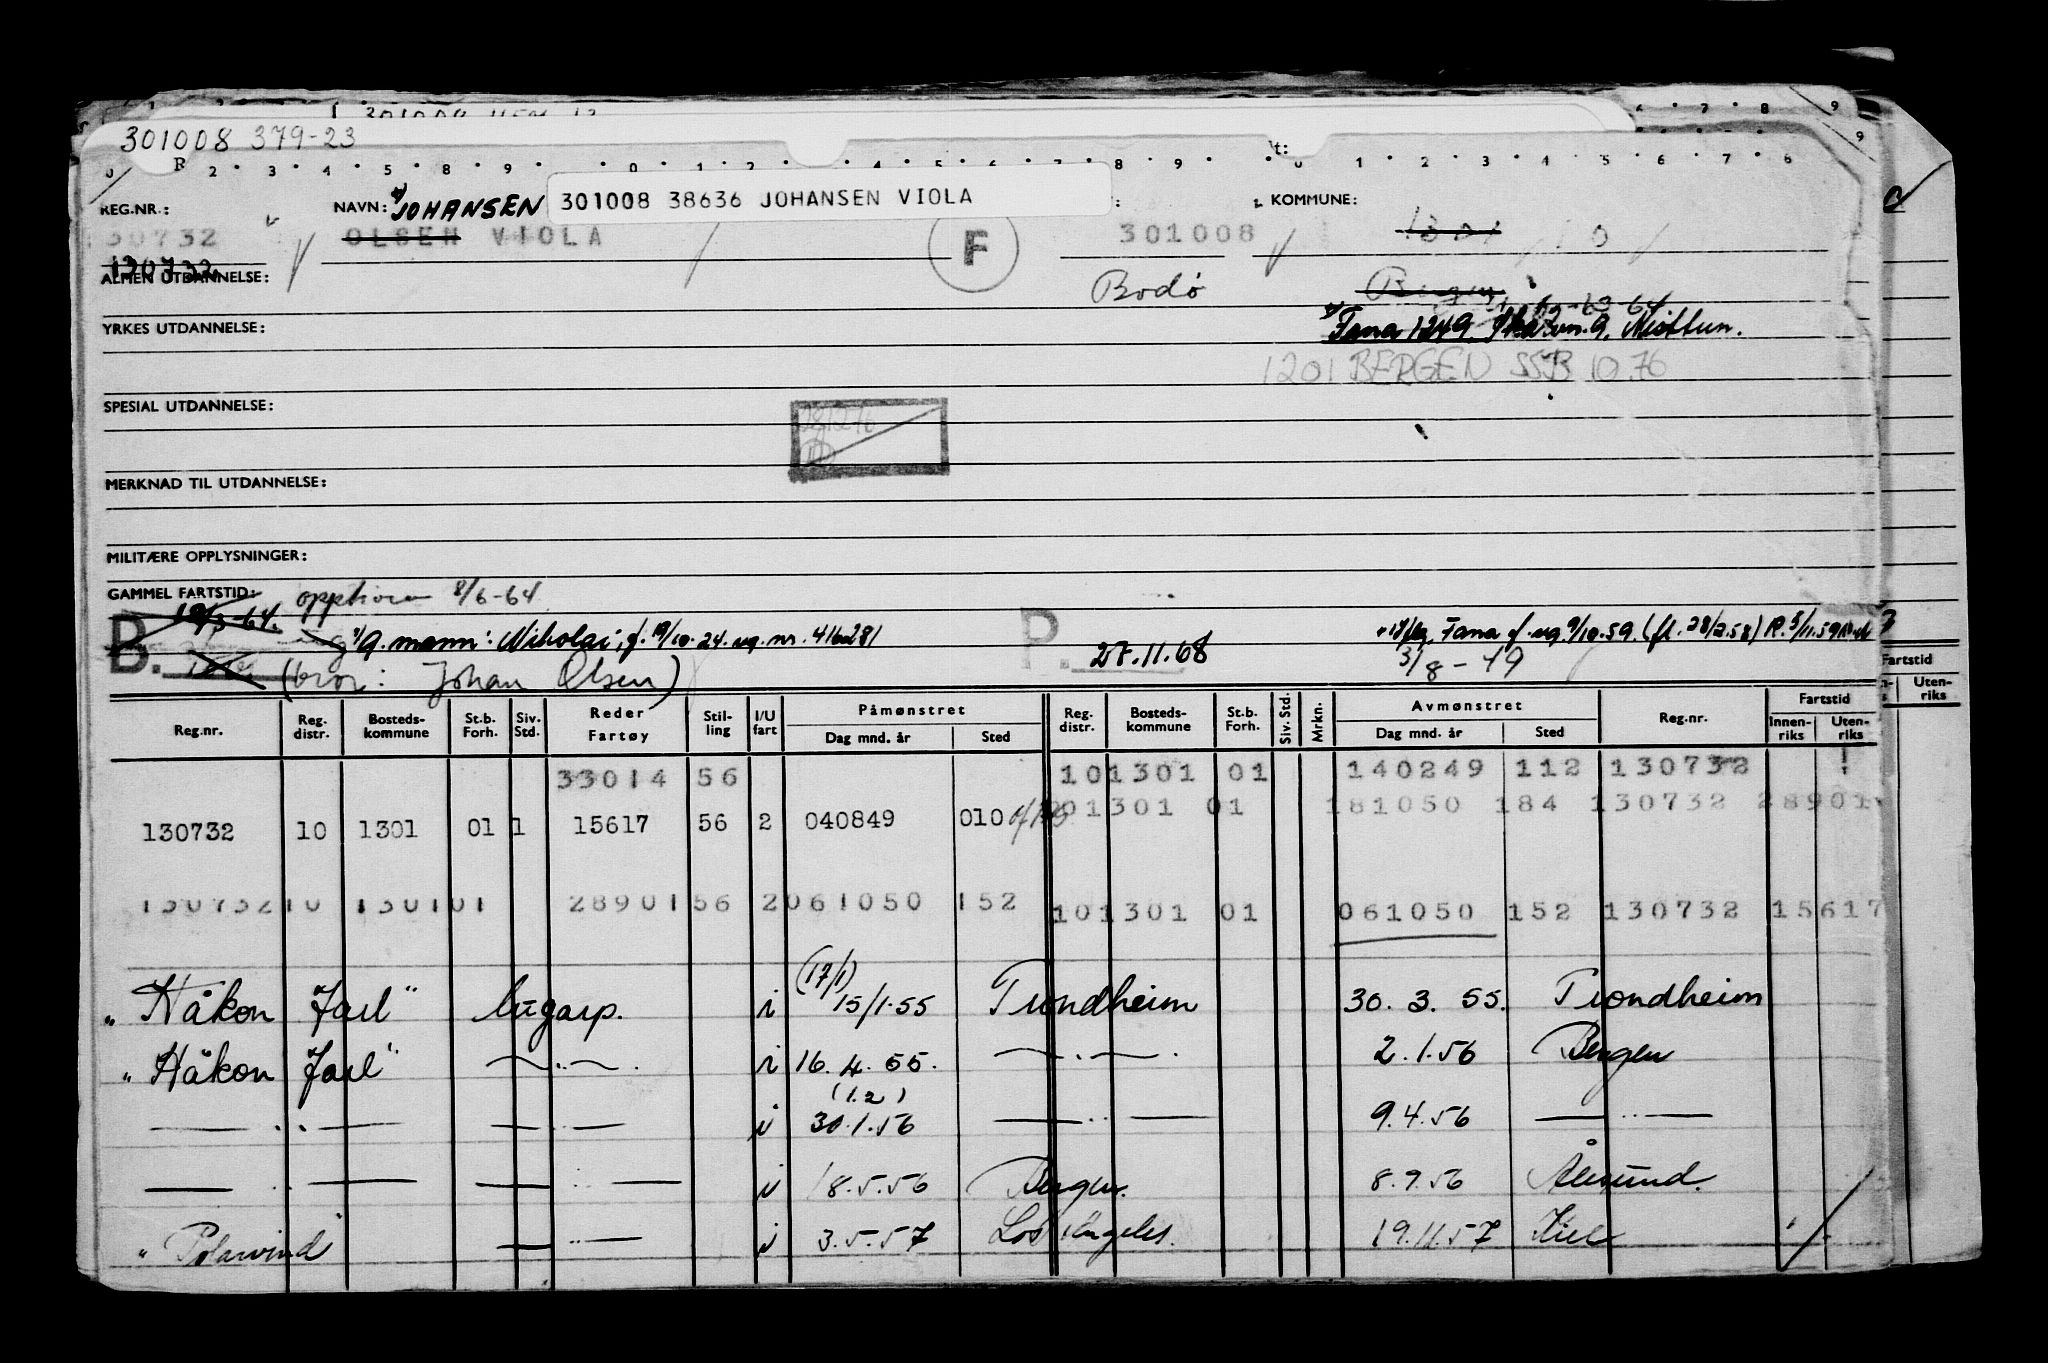 301008 379-23
REG.NR.:
NAVN: JOHANSEN
301008 38636 JOHANSEN VIOLA
KOMMUNE:
30732 OLSEN VIOLA F 301008
130732
ALMEN UTDANNELSE:
Bodø
Bergen
YRKES UTDANNELSE:
Fana 1249
1201 BERGEN SSB 10.76
SPESIAL UTDANNELSE:
MERKNAD TIL UTDANNELSE:
MILITÆRE OPPLYSNINGER:
GAMMEL FARTSTID: 8/6-64
B. P.
g. mann: Nikolai, f. 19/10-24. ug. nr. 416281
27.11.68
Fana f. ug. 9/10.59. (fl. 28/2.58)
(bror: Johan Olsen)
3/8-49
Fartstid
Uten-riks
Reg.nr. Reg. distr. Bosteds-kommune St.b. Forh. Siv. Std. Reder Fartøy Stil-ling I/U fart Påmønstret Dag mnd. år Sted Reg. distr. Bosteds-kommune St.b. Forh. Siv. Std. Mrkn. Avmønstret Dag mnd. år Sted Reg.nr. Fartstid Innen-riks Uten-riks
33014 56 10 1301 01 140249 112 130732
1301 01 181050 184 130732 28901
130732 10 1301 01 1 15617 56 2 040849 010
130732 10 1301 01 28901 56 2 061050 152 10 1301 01 061050 152 130732 15617
(17/1)
"Håkon Jarl" lugarp. i 15/1-55 Trondheim 30. 3. 55. Trondheim
"Håkon Jarl" i 16. 4. 55. 2.1.56 Bergen
(1.2)
i 30.1.56 9.4.56
i 18.5.56 Bergen. 8.9.56 Ålesund.
"Polarvind" 3.5.57 Los Angeles. 19.11.57 Kiel